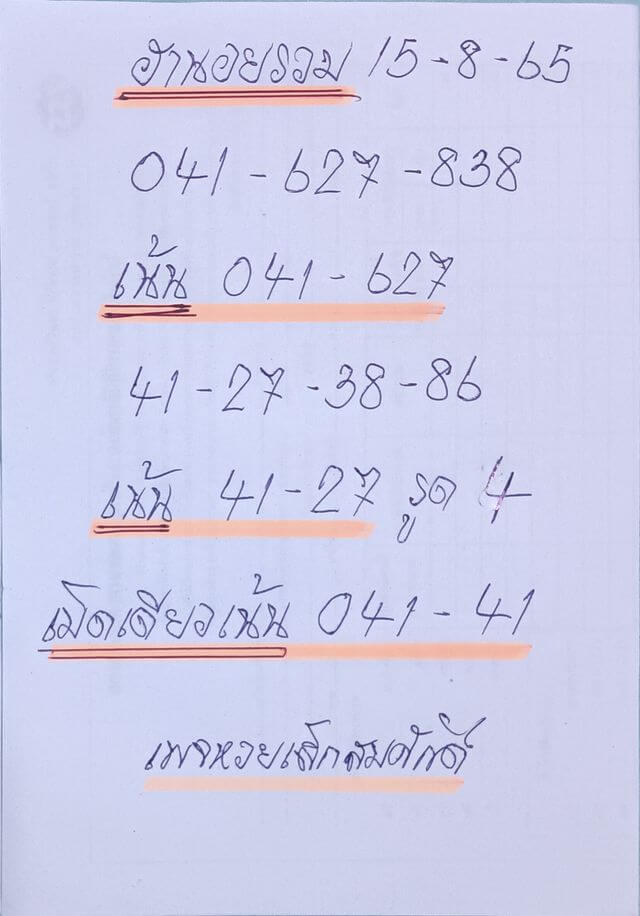 ฮานอยรวม 15-8-65
041-627-838
เน้น 041-627
41-27-38-86
เน้น 41-27 รูด 4
เม็ดเดียวเน้น 041-41
เพจหวยเสกสมศักดิ์